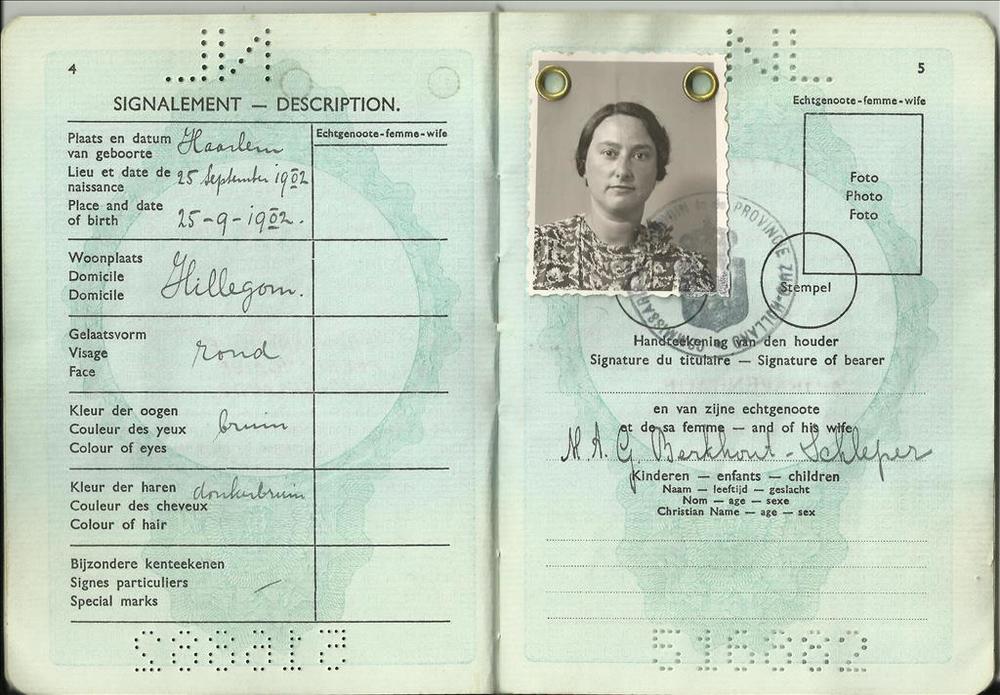 4
SIGNALEMENT — DESCRIPTION.
Echtgenoote-femme-wife
Plaats en datum van geboorte
Haarlem
Lieu et date de naissance
25 September 1902
Place and date of birth
25-9-1902.
Woonplaats
Domicile
Domicile
Hillegom.
Gelaatsvorm
Visage
Face
rond
Kleur der oogen
Couleur des yeux
Colour of eyes
bruin
Kleur der haren
Couleur des cheveux
Colour of hair
donkerbruin
Bijzondere kenteekenen
Signes particuliers
Special marks
—
NL
5
Echtgenoote-femme-wife
Foto
Photo
Foto
Stempel
PROVINCIE ZUID-HOLLAND
Handteekening van den houder
Signature du titulaire — Signature of bearer
en van zijne echtgenoote
et de sa femme — and of his wife
M. A. G. Berkhout-Schleper
Kinderen — enfants — children
Naam — leeftijd — geslacht
Nom — age — sexe
Christian Name — age — sex